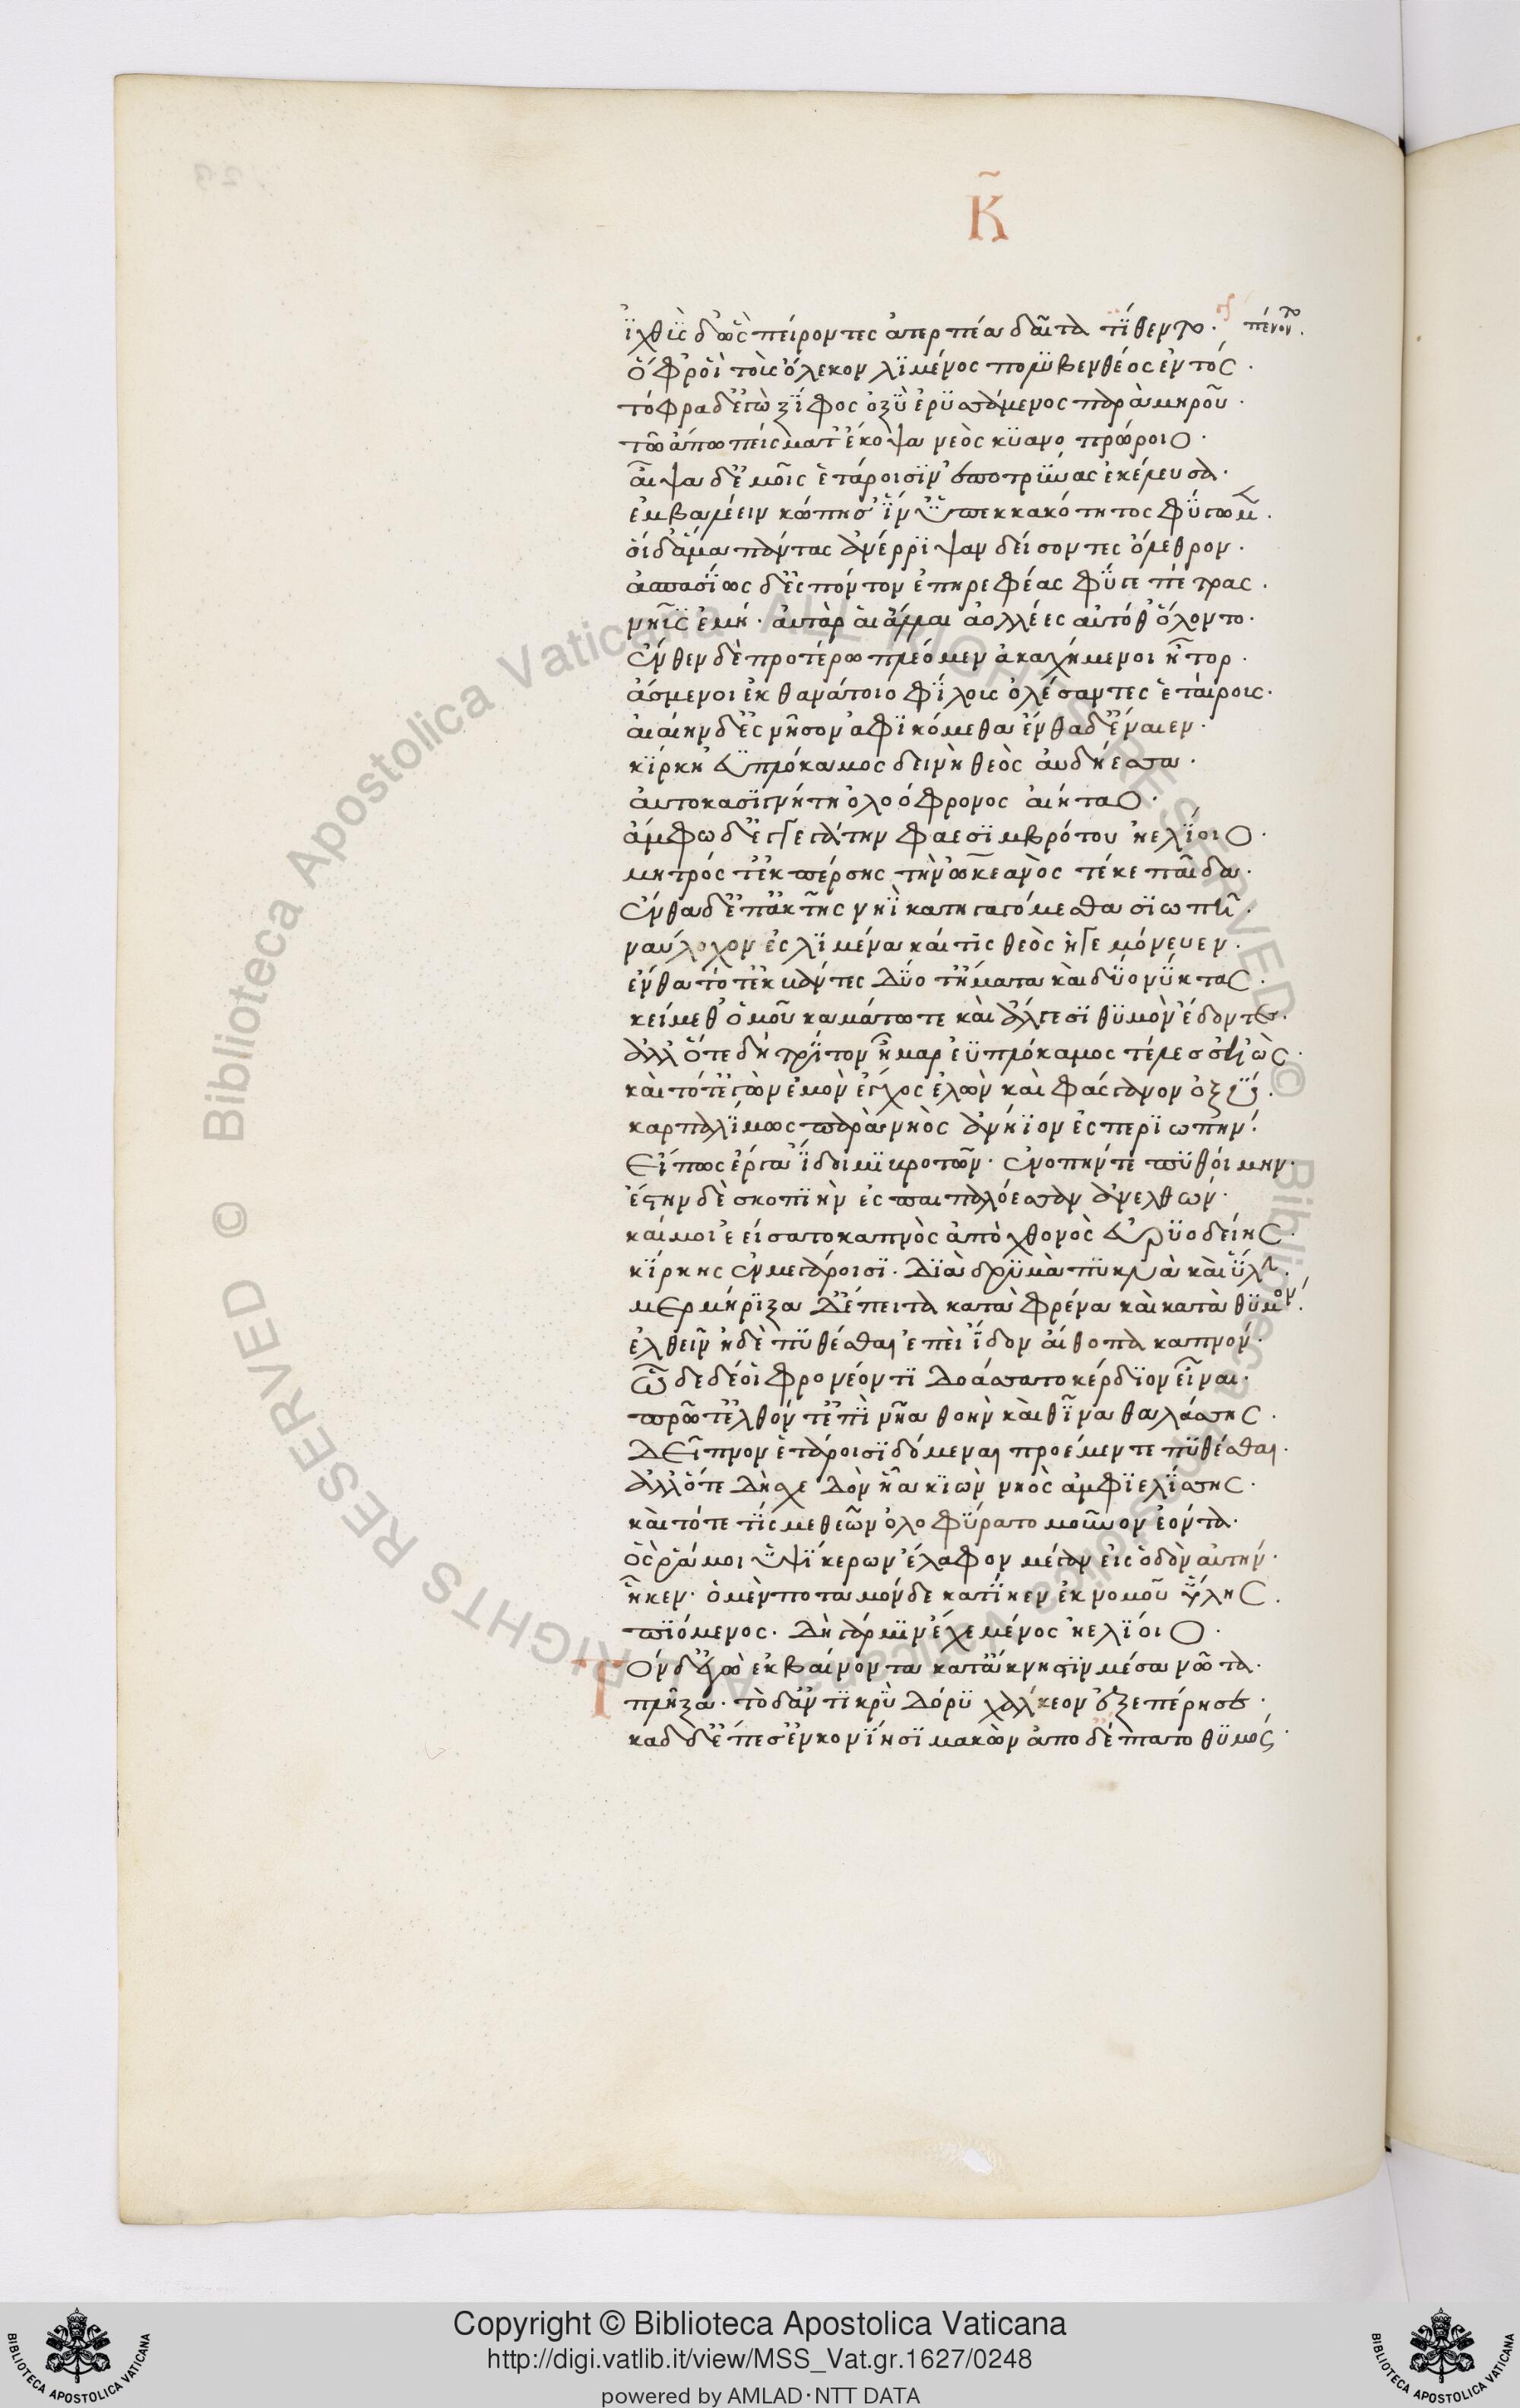 Κ̃
ἰχθῦς δ' ὣς πείροντες ἀτερπέα δαῖτα τίθεντο· πένοντο.
ὄφρ' οἳ τοὺς ὄλεκον λιμένος πολυβενθέος ἐντός·
τόφρα δ' ἐγὼ ξίφος ὀξὺ ἐρυσσάμενος παρὰ μηροῦ·
τῶ ἀπὸ πείσματ' ἔκοψα νεὸς κυανοπρώροιο·
αἶψα δ' ἐμοῖς ἑτάροισιν ἐποτρύνας ἐκέλευσα·
ἐμβαλέειν κώπῃσ' ἵν' ὑπ' ἐκ κακότητος φύγωμεν.
οἱ δ' ἅμα πάντες ἀνέρριψαν δείσαντες ὄλεθρον·
ἀσπασίως δ' ἐς πόντον ἐπηρεφέας φύγε πέτρας.
νηῦς ἐμή· αὐτὰρ αἱ ἄλλαι ἀολλέες αὐτόθ' ὄλοντο·
ἔνθεν δὲ προτέρω πλέομεν ἀκαχήμενοι ἦτορ·
ἄσμενοι ἐκ θανάτοιο φίλους ὀλέσαντες ἑταίρους·
αἰαίην δ' ἐς νῆσον ἀφικόμεθα ἔνθα δ' ἔναιεν·
κίρκη ἐϋπλόκαμος δεινὴ θεὸς αὐδήεσσα·
αὐτοκασιγνήτη ὀλοόφρονος αἰήταο·
ἄμφω δ' ἐγγεγάτην φαεσιμβρότου ἠελίοιο·
μητρός τ' ἐκ πέρσης τὴν ὠκεανὸς τέκε παῖδα·
ἔνθα δ' ἐπ' ἀκτῆς νηῒ κατηγαγόμεσθα σιωπῇ·
ναύλοχον ἐς λιμένα καί τις θεὸς ἡγεμόνευεν·
ἔνθα τότ' ἐκβάντες δύο τ' ἤματα καὶ δύο νύκτας·
κείμεθ' ὁμοῦ καμάτω τε καὶ ἄλγεσι θυμὸν ἔδοντες·
ἀλλ' ὅτε δὴ τρίτον ἦμαρ ἐϋπλόκαμος τέλεσ' ἠώς·
καὶ τότ' ἐγὼν ἐμὸν ἔγχος ἑλὼν καὶ φάσγανον ὀξύ·
καρπαλίμως παρὰ νηὸς ἀνήϊον ἐς περιωπήν·
εἴ πως ἔργα ἴδοιμι βροτῶν· ἐνοπήν τε πυθοίμην·
ἔστην δὲ σκοπιὴν ἐς παιπαλόεσσαν ἀνελθών·
καί μοι ἐείσατο καπνὸς ἀπὸ χθονὸς εὐρυοδείης·
κίρκης ἐν μεγάροισι· διὰ δρυμὰ πυκνὰ καὶ ὕλην·
μερμήριξα δ' ἔπειτα κατὰ φρένα καὶ κατὰ θυμόν·
ἐλθεῖν ἠδὲ πυθέσθαι ἐπεὶ ἴδον αἴθοπα καπνόν·
ὧδε δέ οἱ φρονέοντι δοάσσατο κέρδιον εἶναι·
πρῶτ' ἐλθόντ' ἐπὶ νῆα θοὴν καὶ θῖνα θαλάσσης·
δεῖπνον ἑτάροισι δόμεναι προέμεν τε πυθέσθαι·
ἀλλ' ὅτε δὴ σχεδὸν ἦα κιὼν νηὸς ἀμφιελίσσης·
καὶ τότε τίς με θεῶν ὀλοφύρατο μοῦνον ἐόντα·
ὅς ῥά μοι ὑψίκερων ἔλαφον μέγαν εἰς ὁδὸν αὐτήν·
ἧκεν· ὁ μὲν ποταμόνδε κατήϊεν ἐκ νομοῦ ὕλης·
πιόμενος· δὴ γάρ μιν ἔχε μένος ἠελίοιο·
Τὸν δ' ἐγὼ ἐκβαίνοντα κατ' ἄκνηστιν μέσα νῶτα·
πλῆξα· τὸ δ' ἀντικρὺ δόρυ χάλκεον ἐξεπέρησε·
καδ δ' ἔπεσ' ἐν κονίῃσι μακὼν ἀπὸ δ' ἔπτατο θυμός·
Copyright © Biblioteca Apostolica Vaticana
http://digi.vatlib.it/view/MSS_Vat.gr.1627/0248
powered by AMLAD·NTT DATA